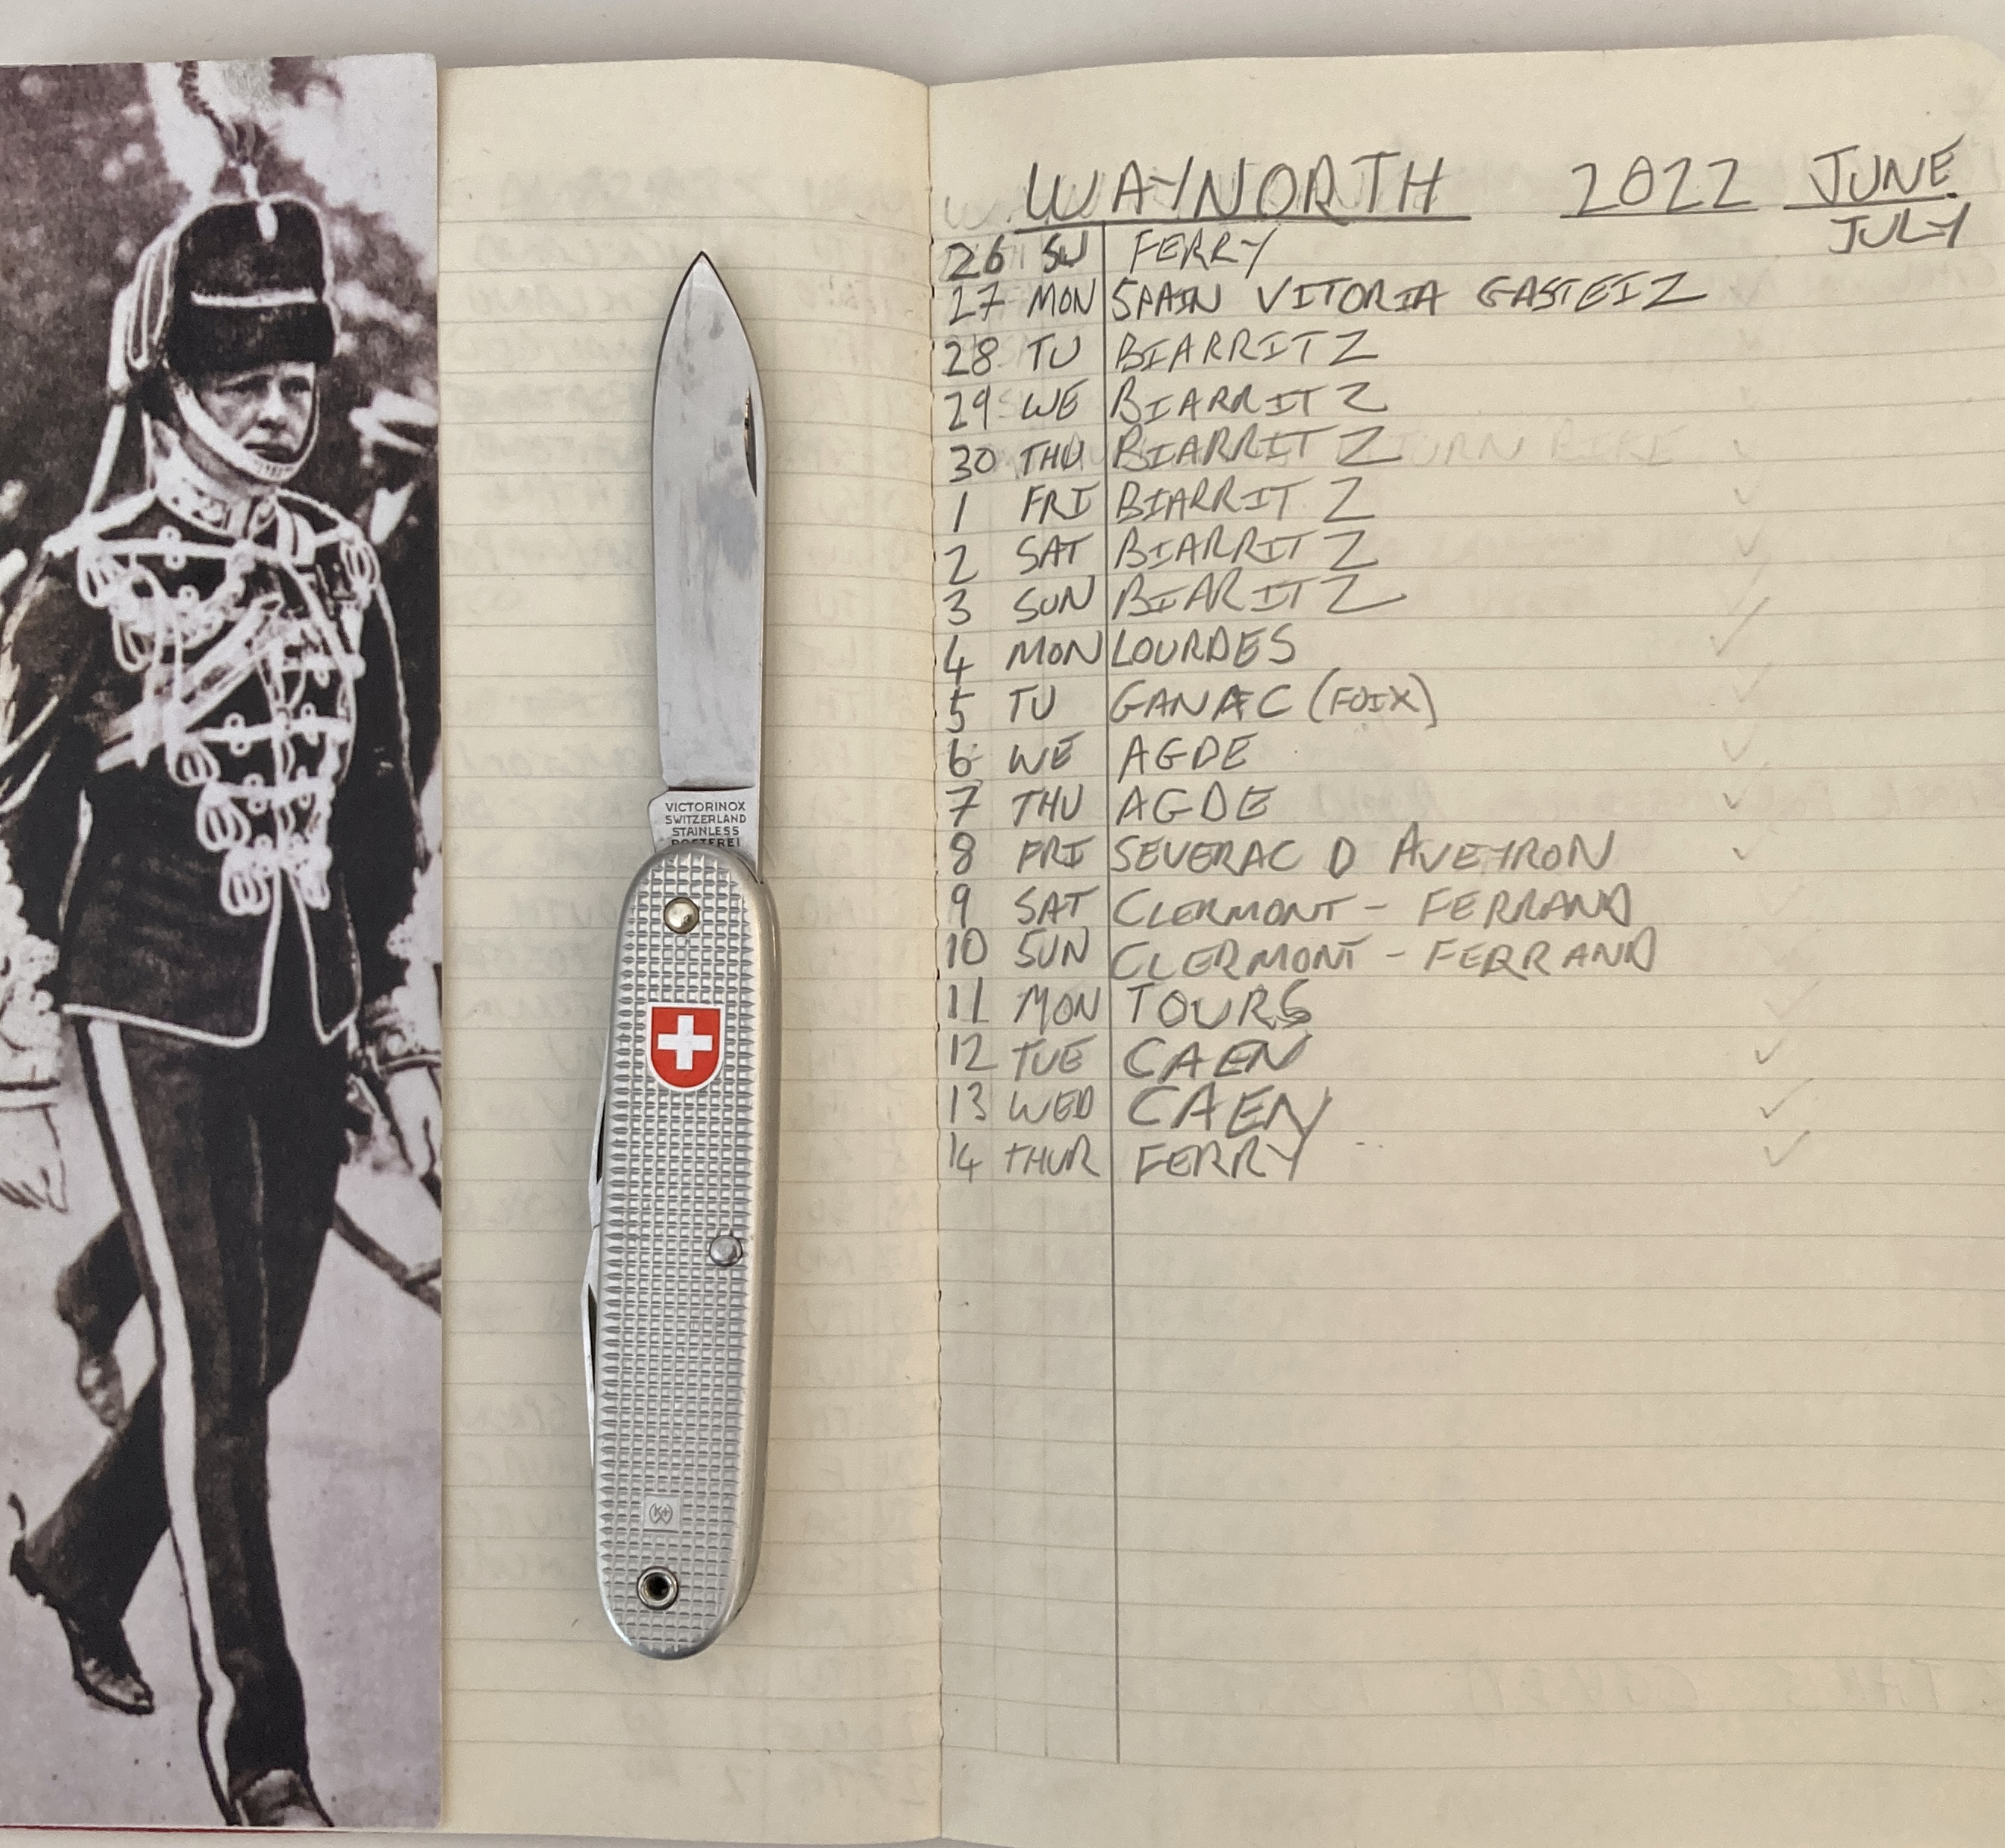 VICTORINOX
SWITZERLAND
STAINLESS
ROSTFREI
WAYNORTH 2022 JUNE
JULY
26 SU FERRY
27 MON SPAIN VITORIA GASTEIZ
28 TU BIARRITZ
29 WE BIARRITZ
30 THU BIARRITZ
1 FRI BIARRITZ
2 SAT BIARRITZ
3 SUN BIARITZ
4 MON LOURDES
5 TU GANAC (FOIX)
6 WE AGDE
7 THU AGDE
8 FRI SEVERAC D AVEYRON
9 SAT CLERMONT - FERRAND
10 SUN CLERMONT - FERRAND
11 MON TOURS
12 TUE CAEN
13 WED CAEN
14 THUR FERRY